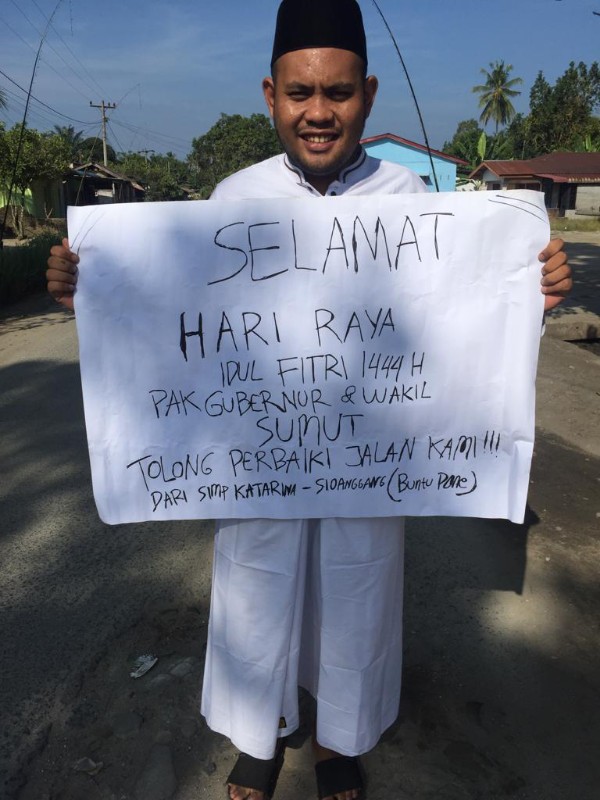 SELAMAT
HARI RAYA
IDUL FITRI 1444 H
PAK GUBERNUR & WAKIL
SUMUT
TOLONG PERBAIKI JALAN KAMI!!!
DARI SIMP KATARINA - SIOANGGANG (BUNTU PANE)